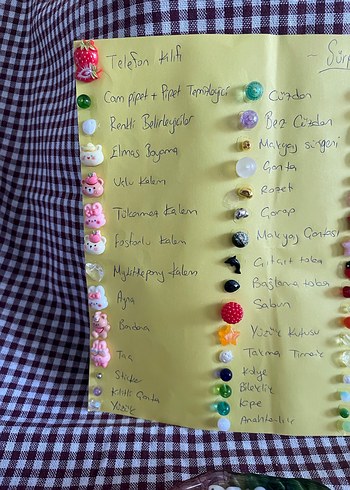 Telefon Kılıfı
Cam pipet + Pipet Temizleyici
Renkli Belirleyiciler
Elmas Boyama
Uclu Kalem
Tükenmez Kalem
Fosforlu Kalem
Kalem
Ayna
Bandana
Taç
Sticker
Kilitli Çanta
Yüzük
- Sürp
Cüzdan
Bez Cüzdan
Makyaj süngeri
Çanta
Rozet
Çorap
Makyaj Çantası
Çıtçıt toka
Bağlama toka
Sabun
Yüzük Kutusu
Takma Tırnak
Kolye
Bileklik
Küpe
Anahtarlık